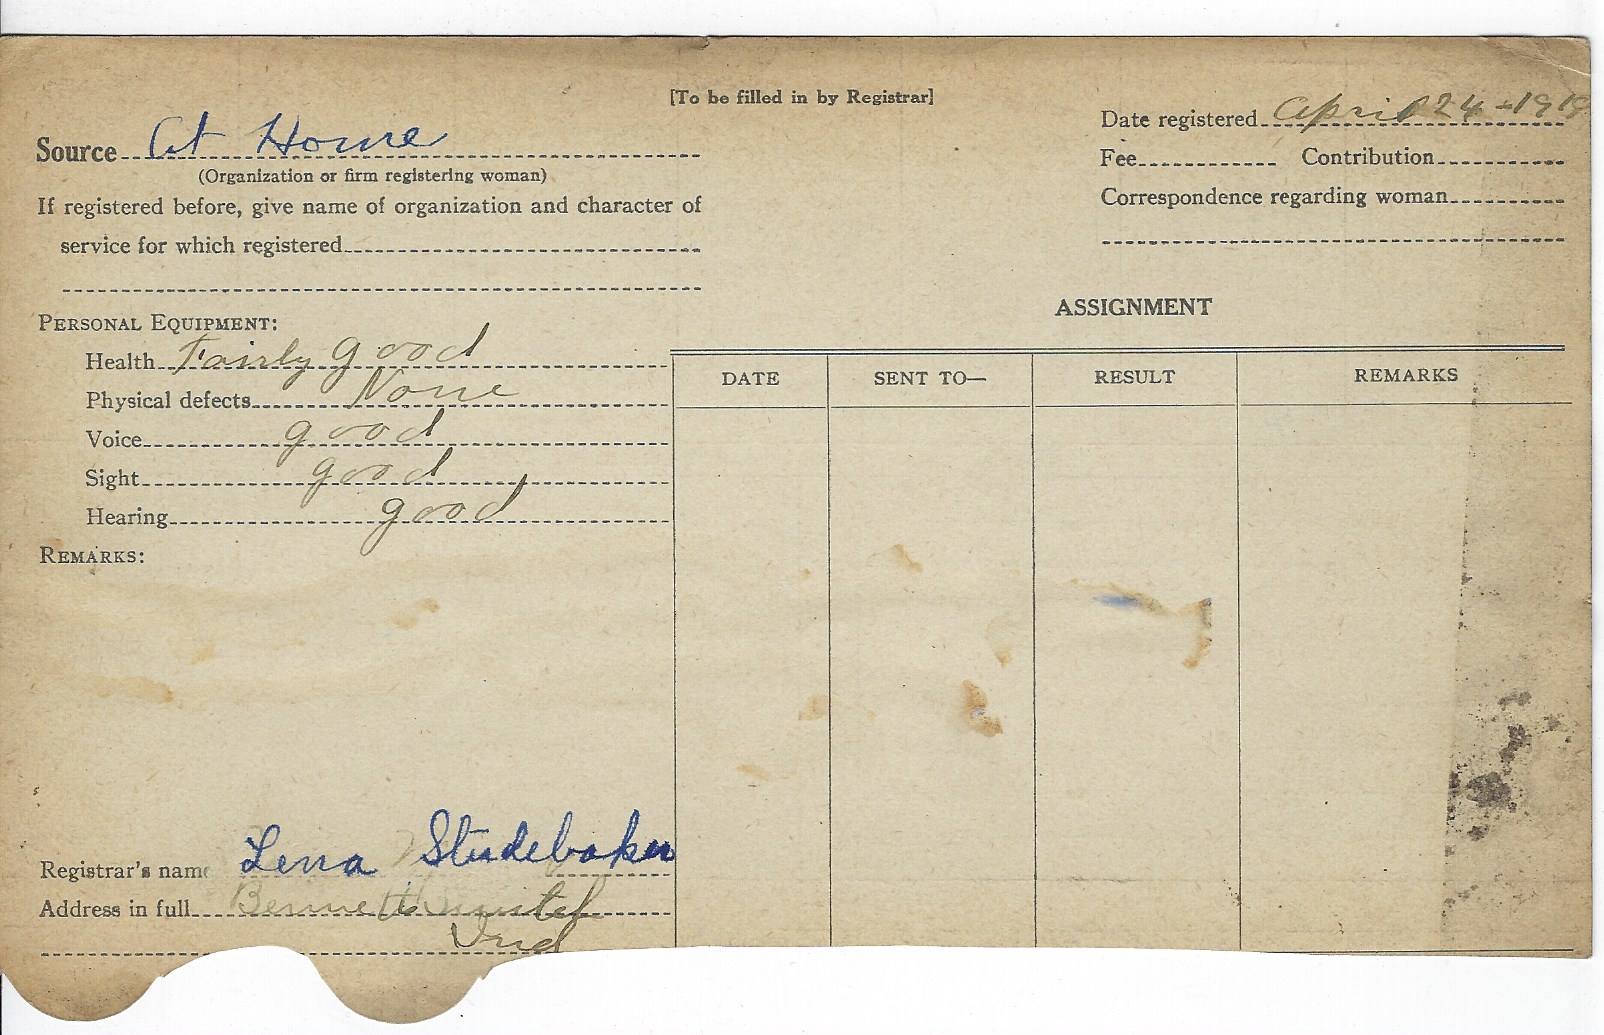 [To be filled in by Registrar]
Date registered April 24-1918
Source At Home
(Organization or firm registering woman)
Fee Contribution
If registered before, give name of organization and character of
Correspondence regarding woman
service for which registered
ASSIGNMENT
PERSONAL EQUIPMENT:
Health Fairly good
Physical defects None
Voice good
Sight good
Hearing good
DATE SENT TO— RESULT REMARKS
REMARKS:
Registrar's name Lena Studebaker
Address in full Bennetts
Ind